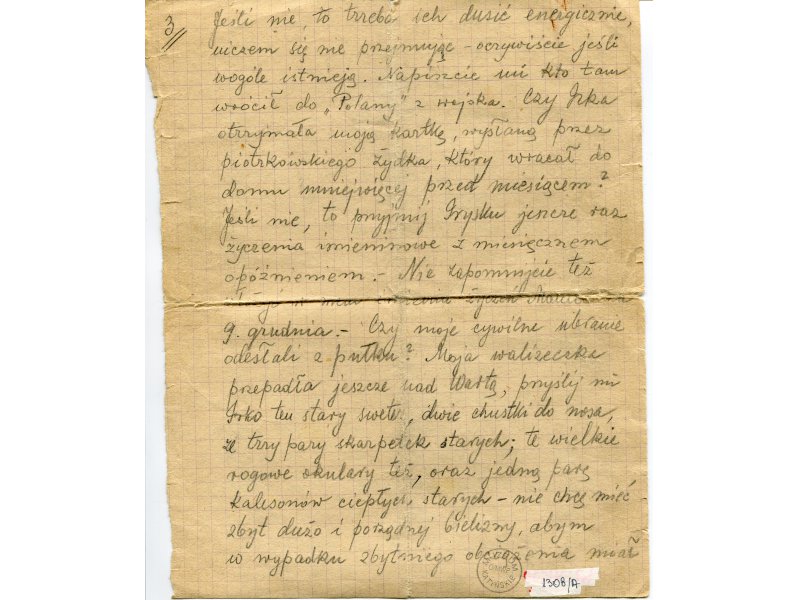 3
Jeśli nie, to trzeba ich dusić energicznie,
niczem się nie przejmując – oczywiście jeśli
wogóle istnieją. Napiszcie mi kto tam
wrócił do „Polany" z wojska. Czy Irka
otrzymała moją kartkę, wysłaną przez
piotrkowskiego żydka, który wracał do
domu mniejwięcej przed miesiącem?
Jeśli nie, to przyjmij Irysku jeszcze raz
życzenia imieninowe z miesięcznem
opóźnieniem. – Nie zapomnijcie też
życzeń
9. grudnia. – Czy moje cywilne ubranie
odesłali z pułku? Moja walizeczka
przepadła jeszcze nad Wartą, przyślij mi
Irko ten stary sweter, dwie chustki do nosa,
ze trzy pary skarpetek starych; te wielkie
rogowe okulary też, oraz jedną parę
kalesonów ciepłych starych – nie chcę mieć
zbyt dużo i porządnej bielizny, abym
w wypadku zbytniego obciążenia miał
1308/A